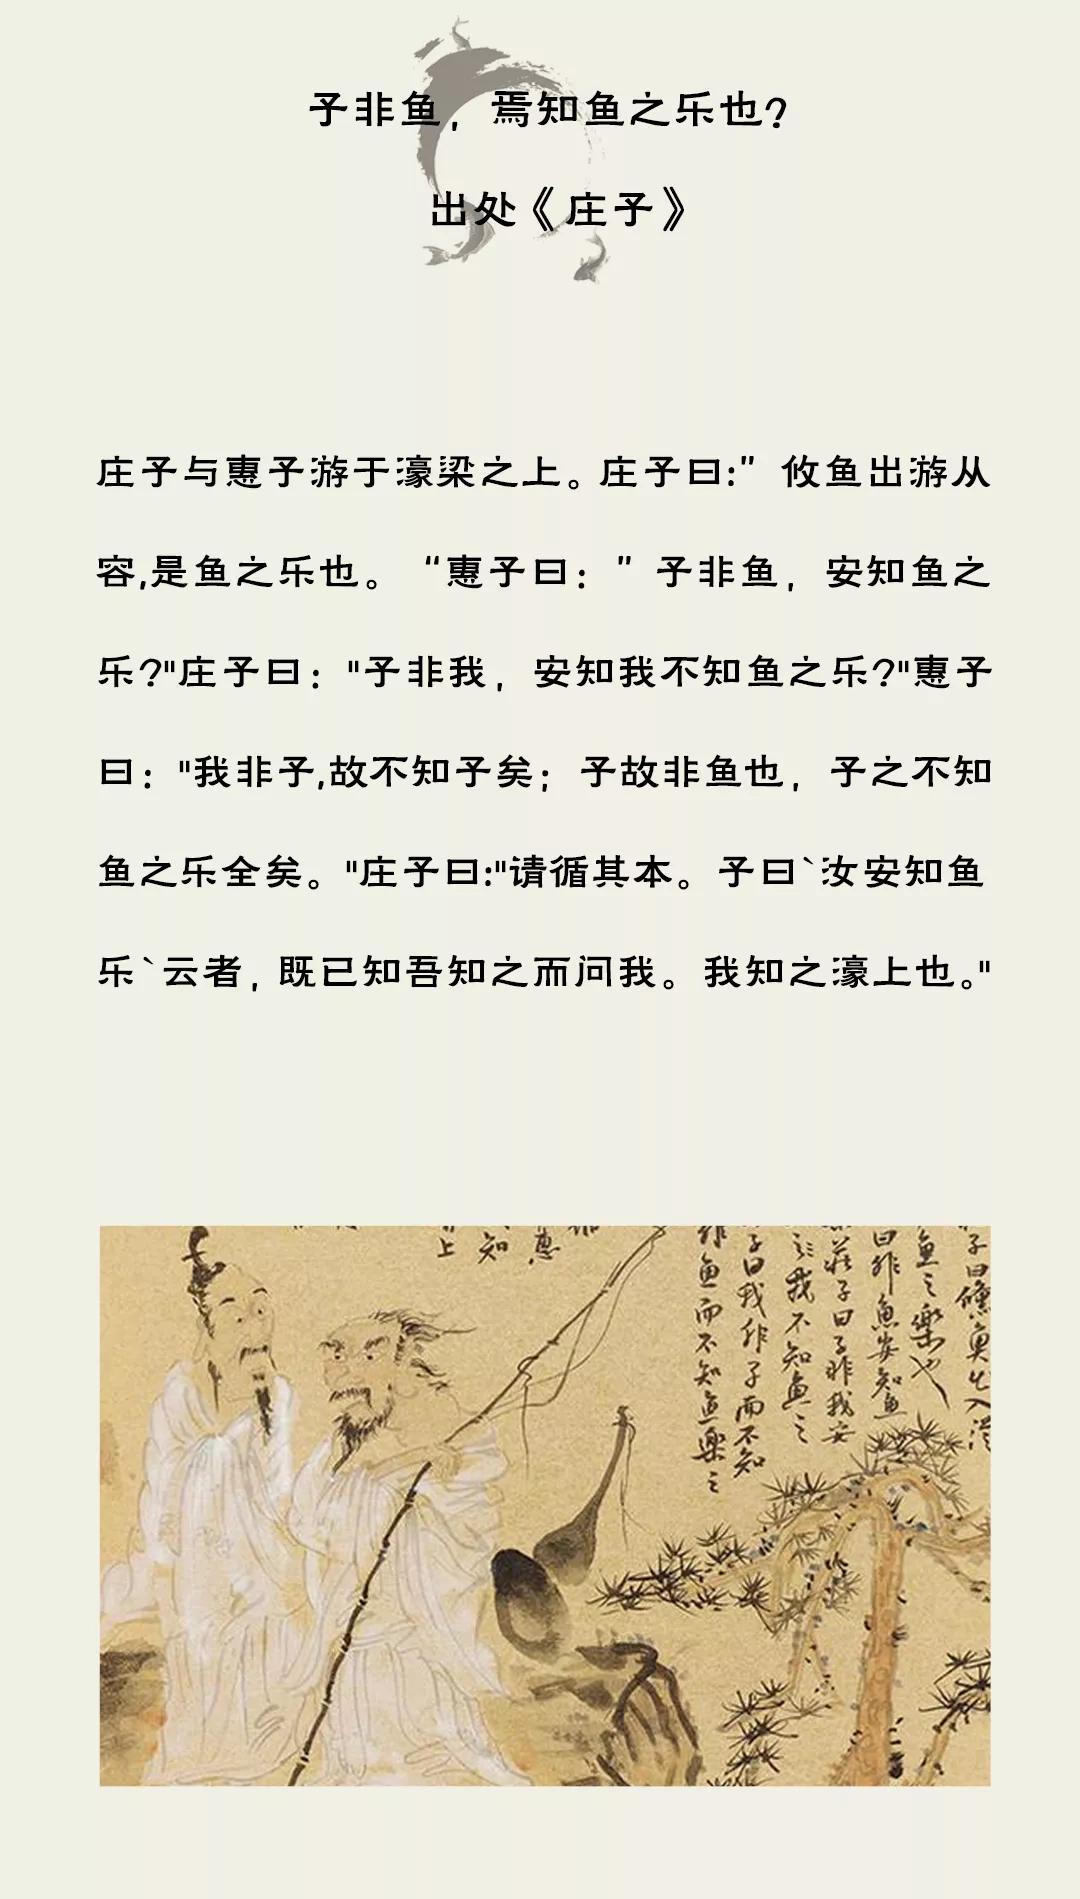 子非鱼，焉知鱼之乐也?
出处《庄子》
庄子与惠子游于濠梁之上。庄子曰:”攸鱼出游从
容,是鱼之乐也。“惠子曰：”子非鱼，安知鱼之
乐?"庄子曰："子非我，安知我不知鱼之乐?"惠子
曰："我非子,故不知子矣；子故非鱼也，子之不知
鱼之乐全矣。"庄子曰:"请循其本。子曰`汝安知鱼
乐`云者，既已知吾知之而问我。我知之濠上也。"
子曰儵魚出入從
魚之樂也
曰非魚安知魚
莊子曰子非我安
我不知魚之
子曰我非子而不知
非魚而不知魚樂之
惠
知
上